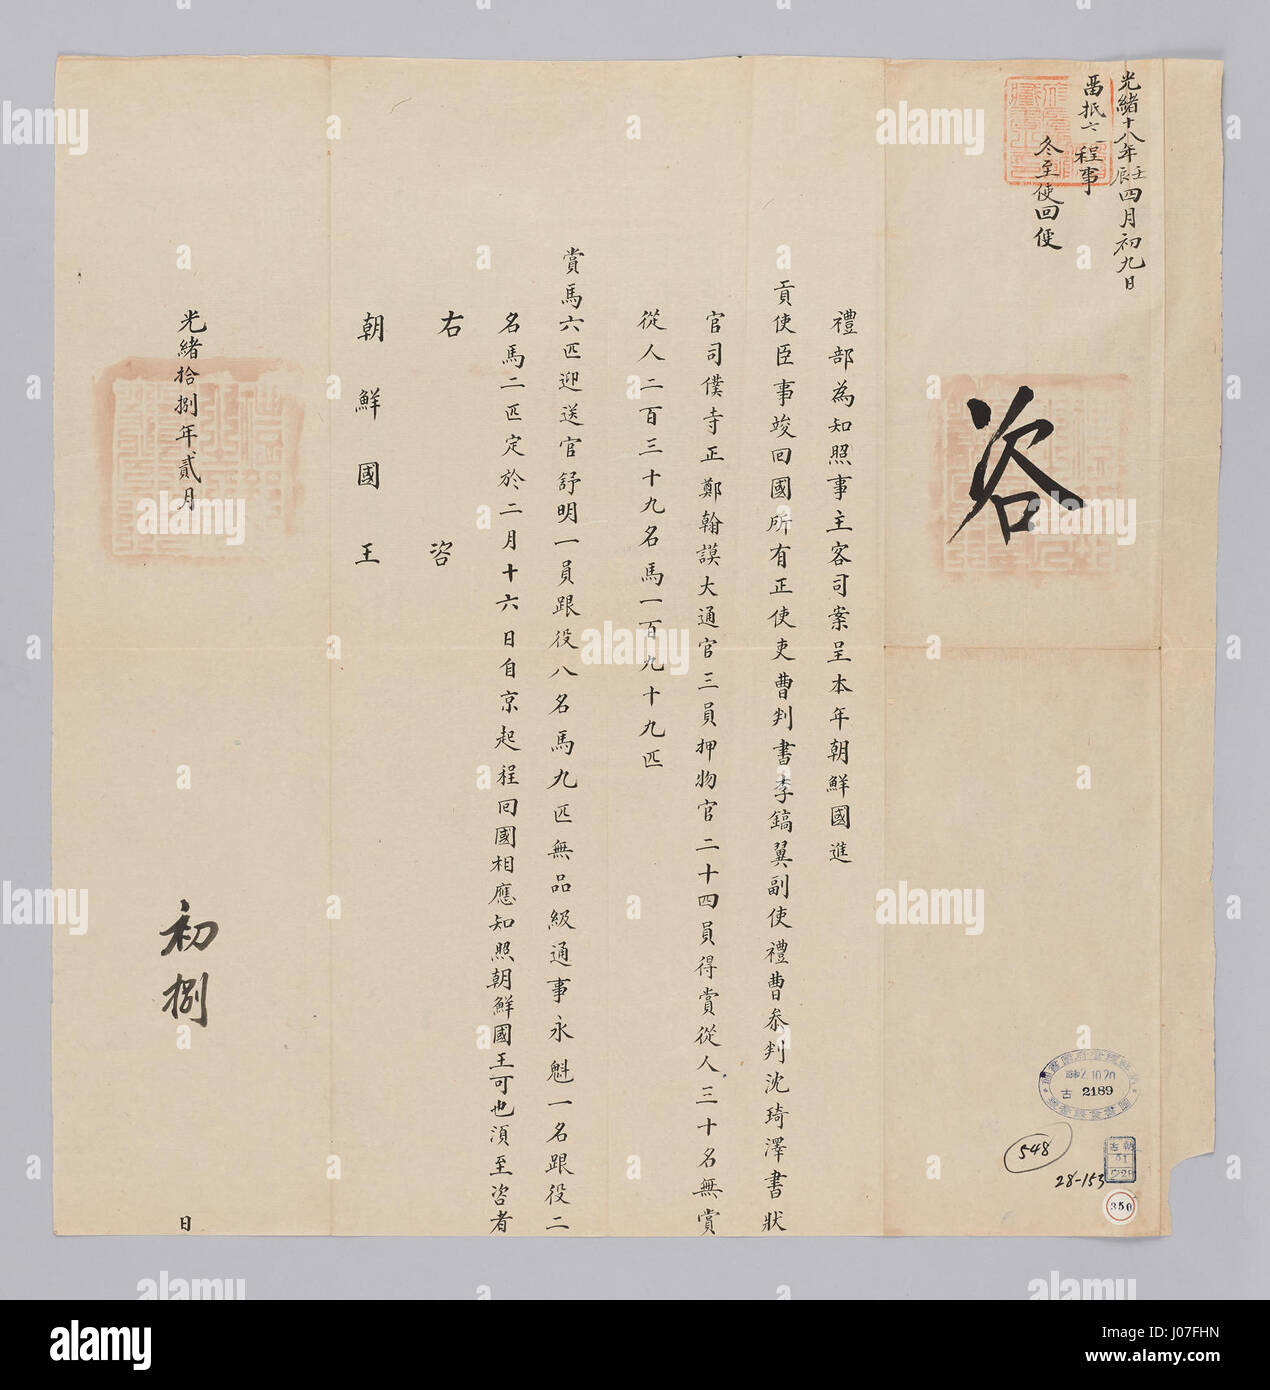 光緖十八年壬辰四月初九日
程事
冬至使回便
咨
禮部為知照事主客司案呈本年朝鮮國進
貢使臣事竣回國所有正使吏曹判書李鎬翼副使禮曹叅判沈琦澤書狀
官司僕寺正鄭翰謨大通官三員押物官二十四員得賞從人三十名無賞
從人二百三十九名馬一百九十九匹
賞馬六匹迎送官舒明一員跟役八名馬九匹無品級通事永魁一名跟役二
名馬二匹定於二月十六日自京起程回國相應知照朝鮮國王可也須至咨者
右 咨
朝鮮國王
光緖拾捌年貳月 初捌 日
2189
548
28-153
350
alamy
Image ID: J07FHN
www.alamy.com